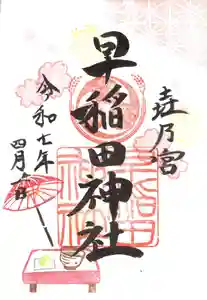 乃宮
早稲田神社
令和七年
四月